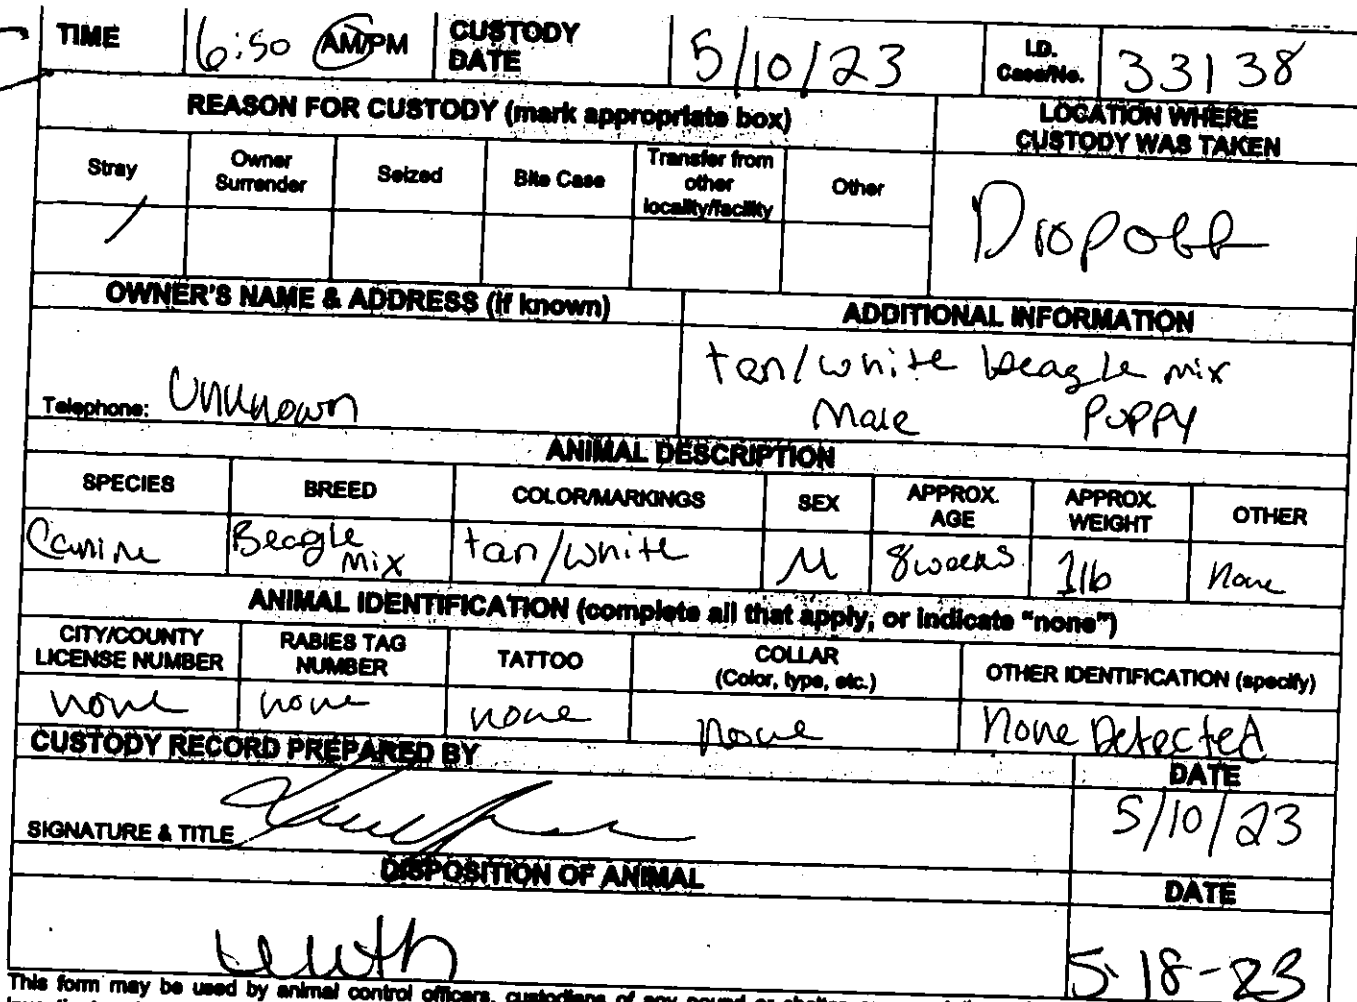 TIME 6:50 AM/PM CUSTODY DATE 5/10/23 I.D. Case/No. 33138
REASON FOR CUSTODY (mark appropriate box) LOCATION WHERE CUSTODY WAS TAKEN
Stray Owner Surrender Seized Bite Case Transfer from other locality/facility Other
/ Dropoff
OWNER'S NAME & ADDRESS (if known) ADDITIONAL INFORMATION
tan/white beagle mix
Telephone: Unknown Male Puppy
ANIMAL DESCRIPTION
SPECIES BREED COLOR/MARKINGS SEX APPROX. AGE APPROX. WEIGHT OTHER
Canine Beagle mix tan/white M 8 weeks 1lb None
ANIMAL IDENTIFICATION (complete all that apply, or indicate "none")
CITY/COUNTY LICENSE NUMBER RABIES TAG NUMBER TATTOO COLLAR (Color, type, etc.) OTHER IDENTIFICATION (specify)
none none none none None Detected
CUSTODY RECORD PREPARED BY DATE
SIGNATURE & TITLE 5/10/23
DISPOSITION OF ANIMAL DATE
5-18-23
This form may be used by animal control officers, custodians of any pound or shelter